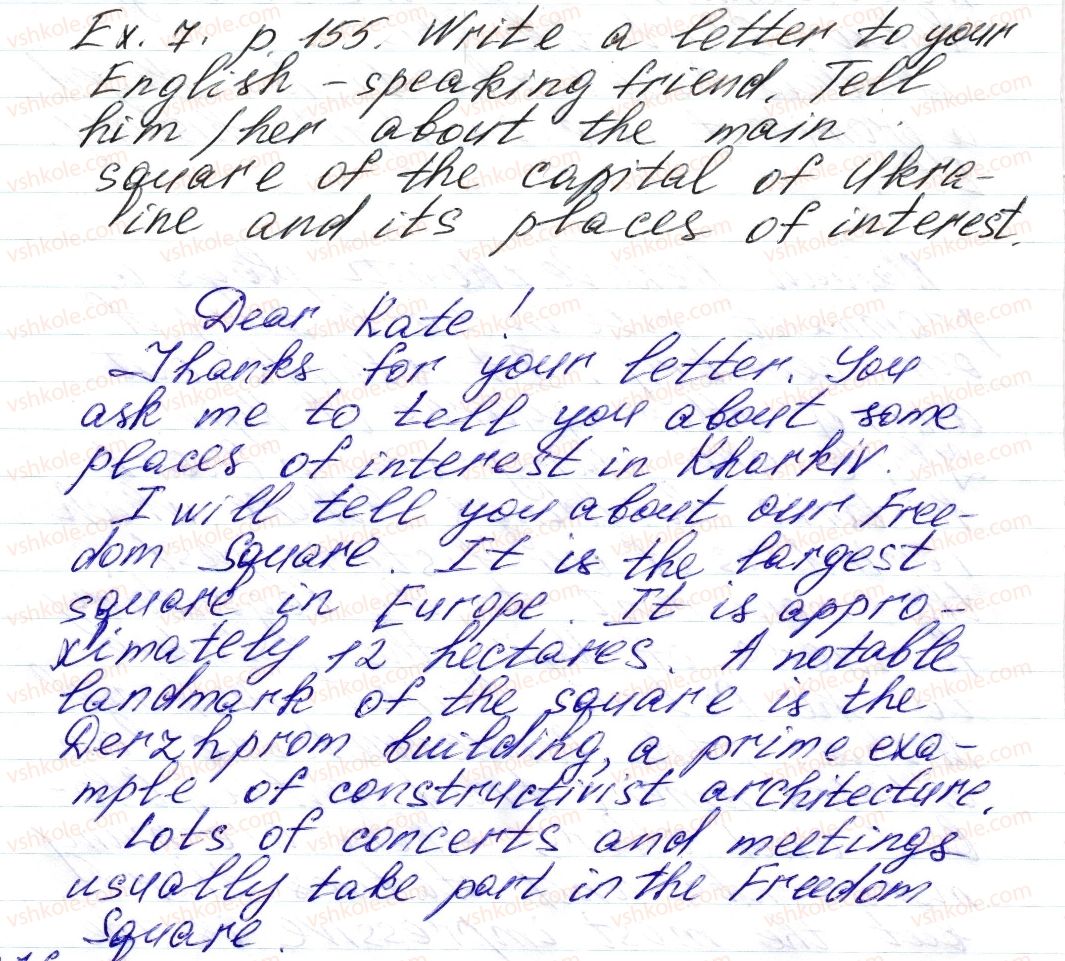 Ex. 7. p. 155. Write a letter to your
English - speaking friend. Tell
him / her about the main
square of the capital of Ukra-
ine and its places of interest.
Dear Kate!
Thanks for your letter. You
ask me to tell you about some
places of interest in Kharkiv.
I will tell you about our Free-
dom Square. It is the largest
square in Europe. It is appro-
ximately 12 hectares. A notable
landmark of the square is the
Derzhprom building, a prime exa-
mple of constructivist architecture.
Lots of concerts and meetings
usually take part in the Freedom
Square.